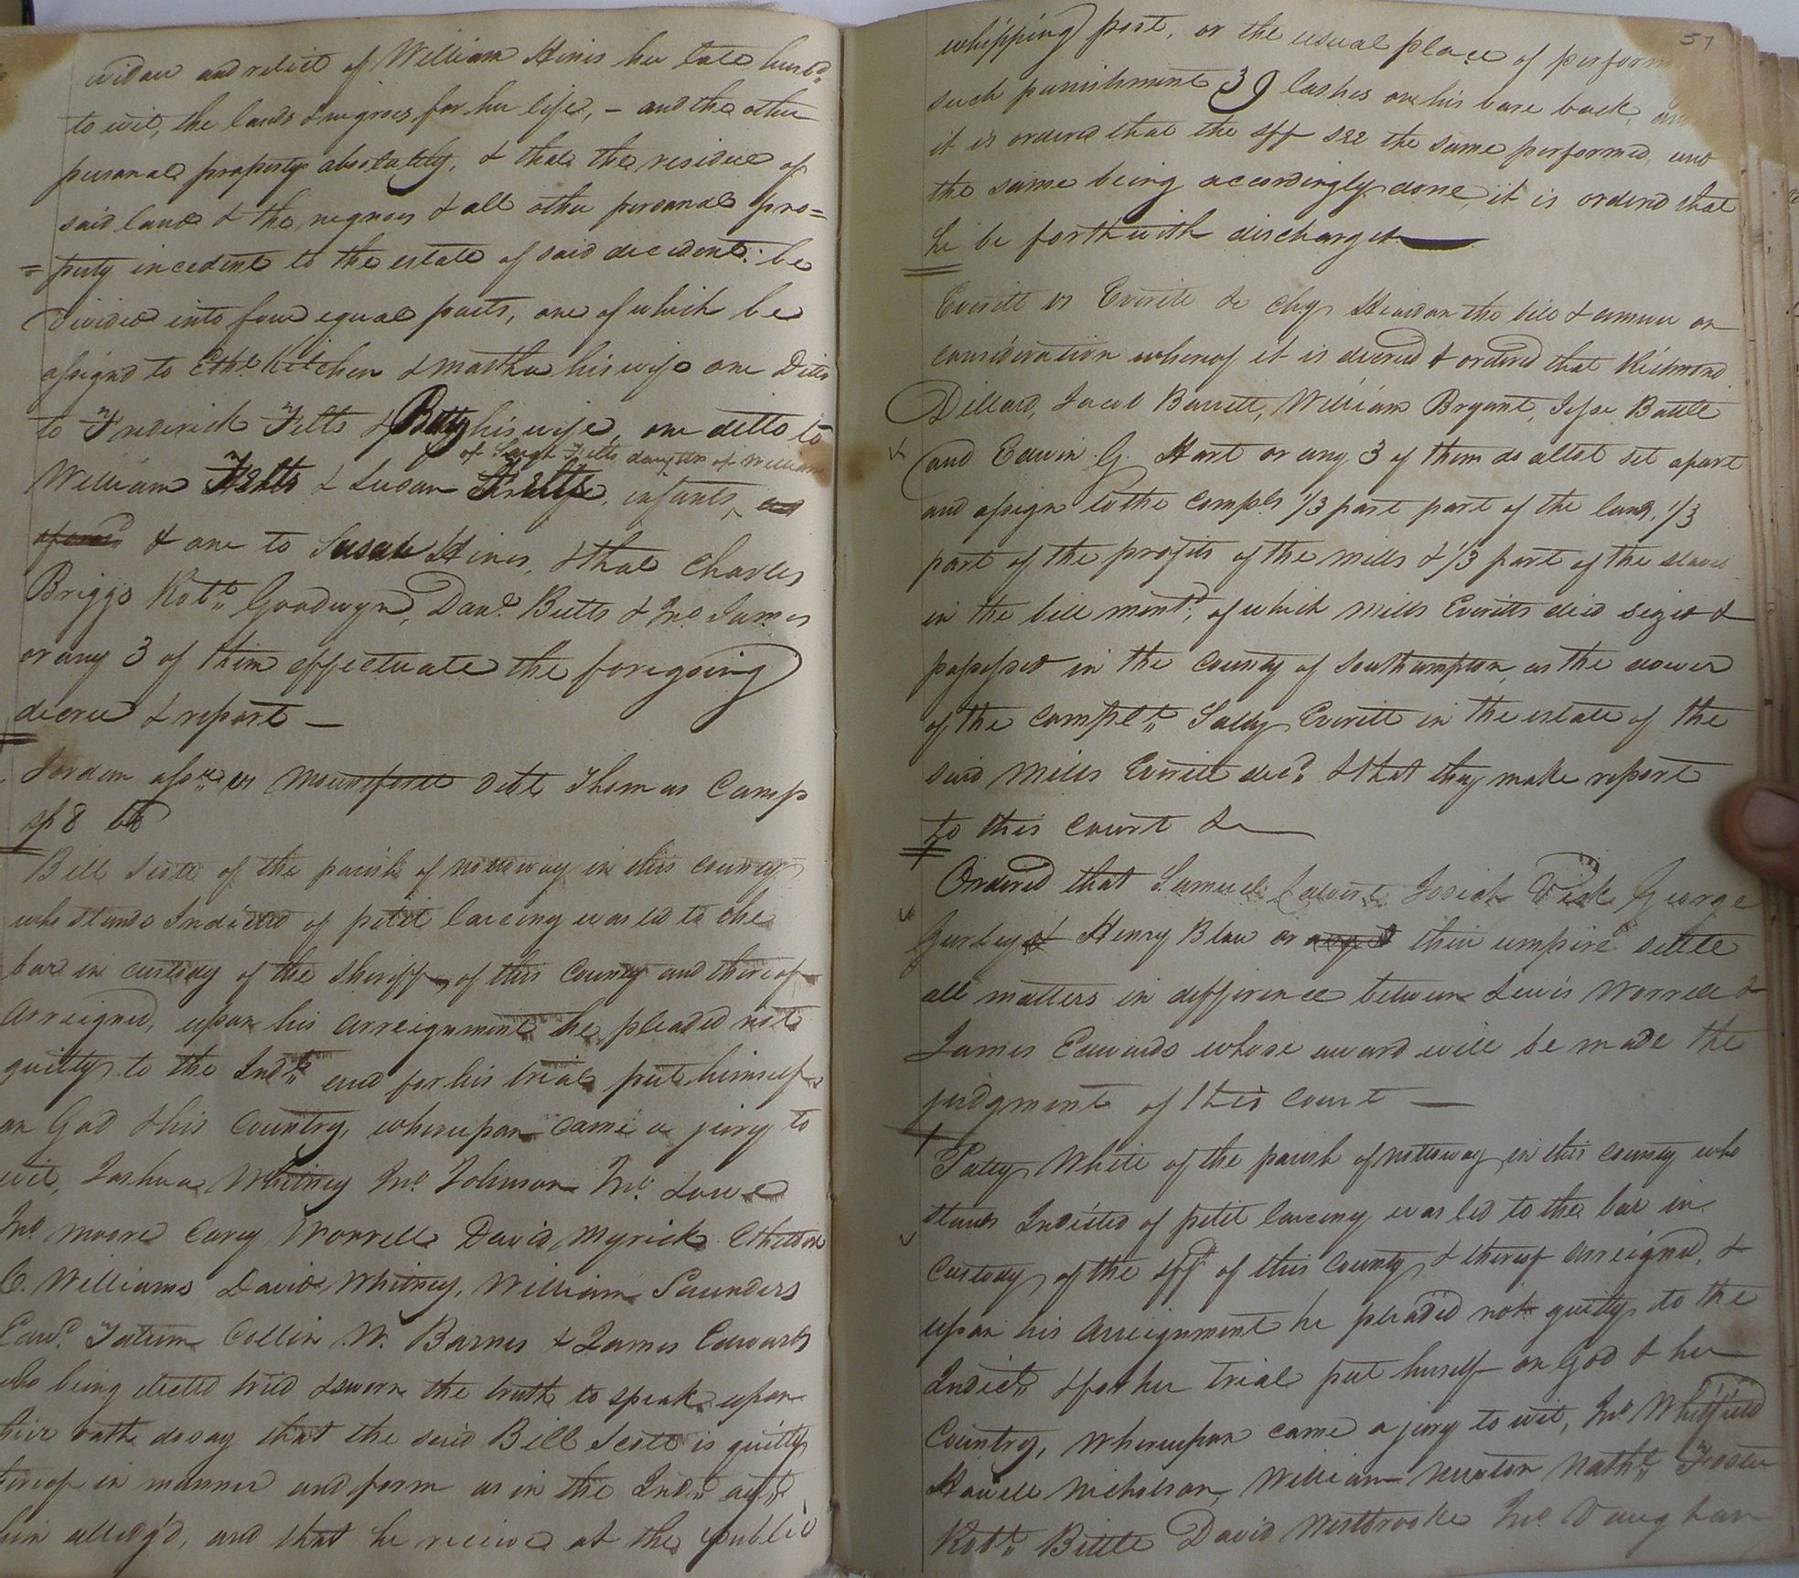 widow and relict of William Hines her late husbd
to wit, the lands & negroes for her life, – and the other
personal property absolutely, & that the residue of
said land & the negroes & all other personal pro=
=perty incedent to the estate of said decedent: be
divided into four equal parts, one of which be
assignd to Ethd. Kitchen & Martha his wife one Ditto
to Frederick Felts & Patsy his wife, one ditto to
of Felts daughter of William
William Felts & Susan infants,
& one to Susan Hines, & that Charles
Briggs Robt. Goodwyn, Danl. Butts & Jno. James
or any 3 of them effectuate the foregoing
decree & report —
Jordan assee. vs Mountfortt Debt Thomas Camp
sp8 bb
Bill Scott of the parish of nottoway in this county
who stands Indicted of petit larceny was led to the
bar in custody of the Sheriff, of this County and thereof
arreigned, upon his arreignment he pleaded not
guilty to the Indt. and for his trial put himself
on God & his Country, whereupon came a jury to
wit, Joshua Whitney Jno. Johnson Jno. Love
Jno. Moore Carey Worrell David Myrick Etheldred
C. Williams David Whitney, William Saunders
Edwd. Tatum Collin W. Barnes & James Edwards
who being elected tried & sworn the truth to speak upon
their oath do say that the said Bill Scott is guilty
thereof in manner and form as in the Indt. agt.
him alledg'd, and that he receive at the public
57
whipping post, or the usual place of perform
such punishment 39 lashes on his bare back, and
it is ordered that the sff see the same performed, and
the same being accordingly done, it is ordered that
he be forthwith discharged —
Everitt vs Everitt &c chy Heard on the bill & answer on
consideration whereof it is decreed & ordered that Richmond
Dillard, Jacob Barrett, William Bryant, Jesse Battle
and Edwin G. Hart or any 3 of them do allot set apart
and assign to the Complt 1/3 part part of the land, 1/3
part of the profits of the mills & 1/3 part of the slaves
in the bill mentd; of which Mills Everitts died seized &
possessed in the county of Southampton, as the dower
of the Complt. Sally Everitt in the estate of the
said Mills Everitt decd. & that they make report
to this court &c
Ordered that Samuel Josiah George
Gurley Henry Blow or their umpire settle
all matters in difference between Lewis Worrell &
James Edwards whose award will be made the
judgment of this court —
Patty White of the parish of nottoway in this county who
stands Indicted of petit larceny was led to the bar in
custody of the sff of this County & thereof arreigned, &
upon his arreignment he pleaded not guilty to the
Indict. & for her trial put herself on God & her
Country, whereupon came a jury to wit, Jno. Whitfield
Howell Nicholson, William Newton Nathl. Foster
Robt. Bittle David Westbrooke Jno. Vaughan